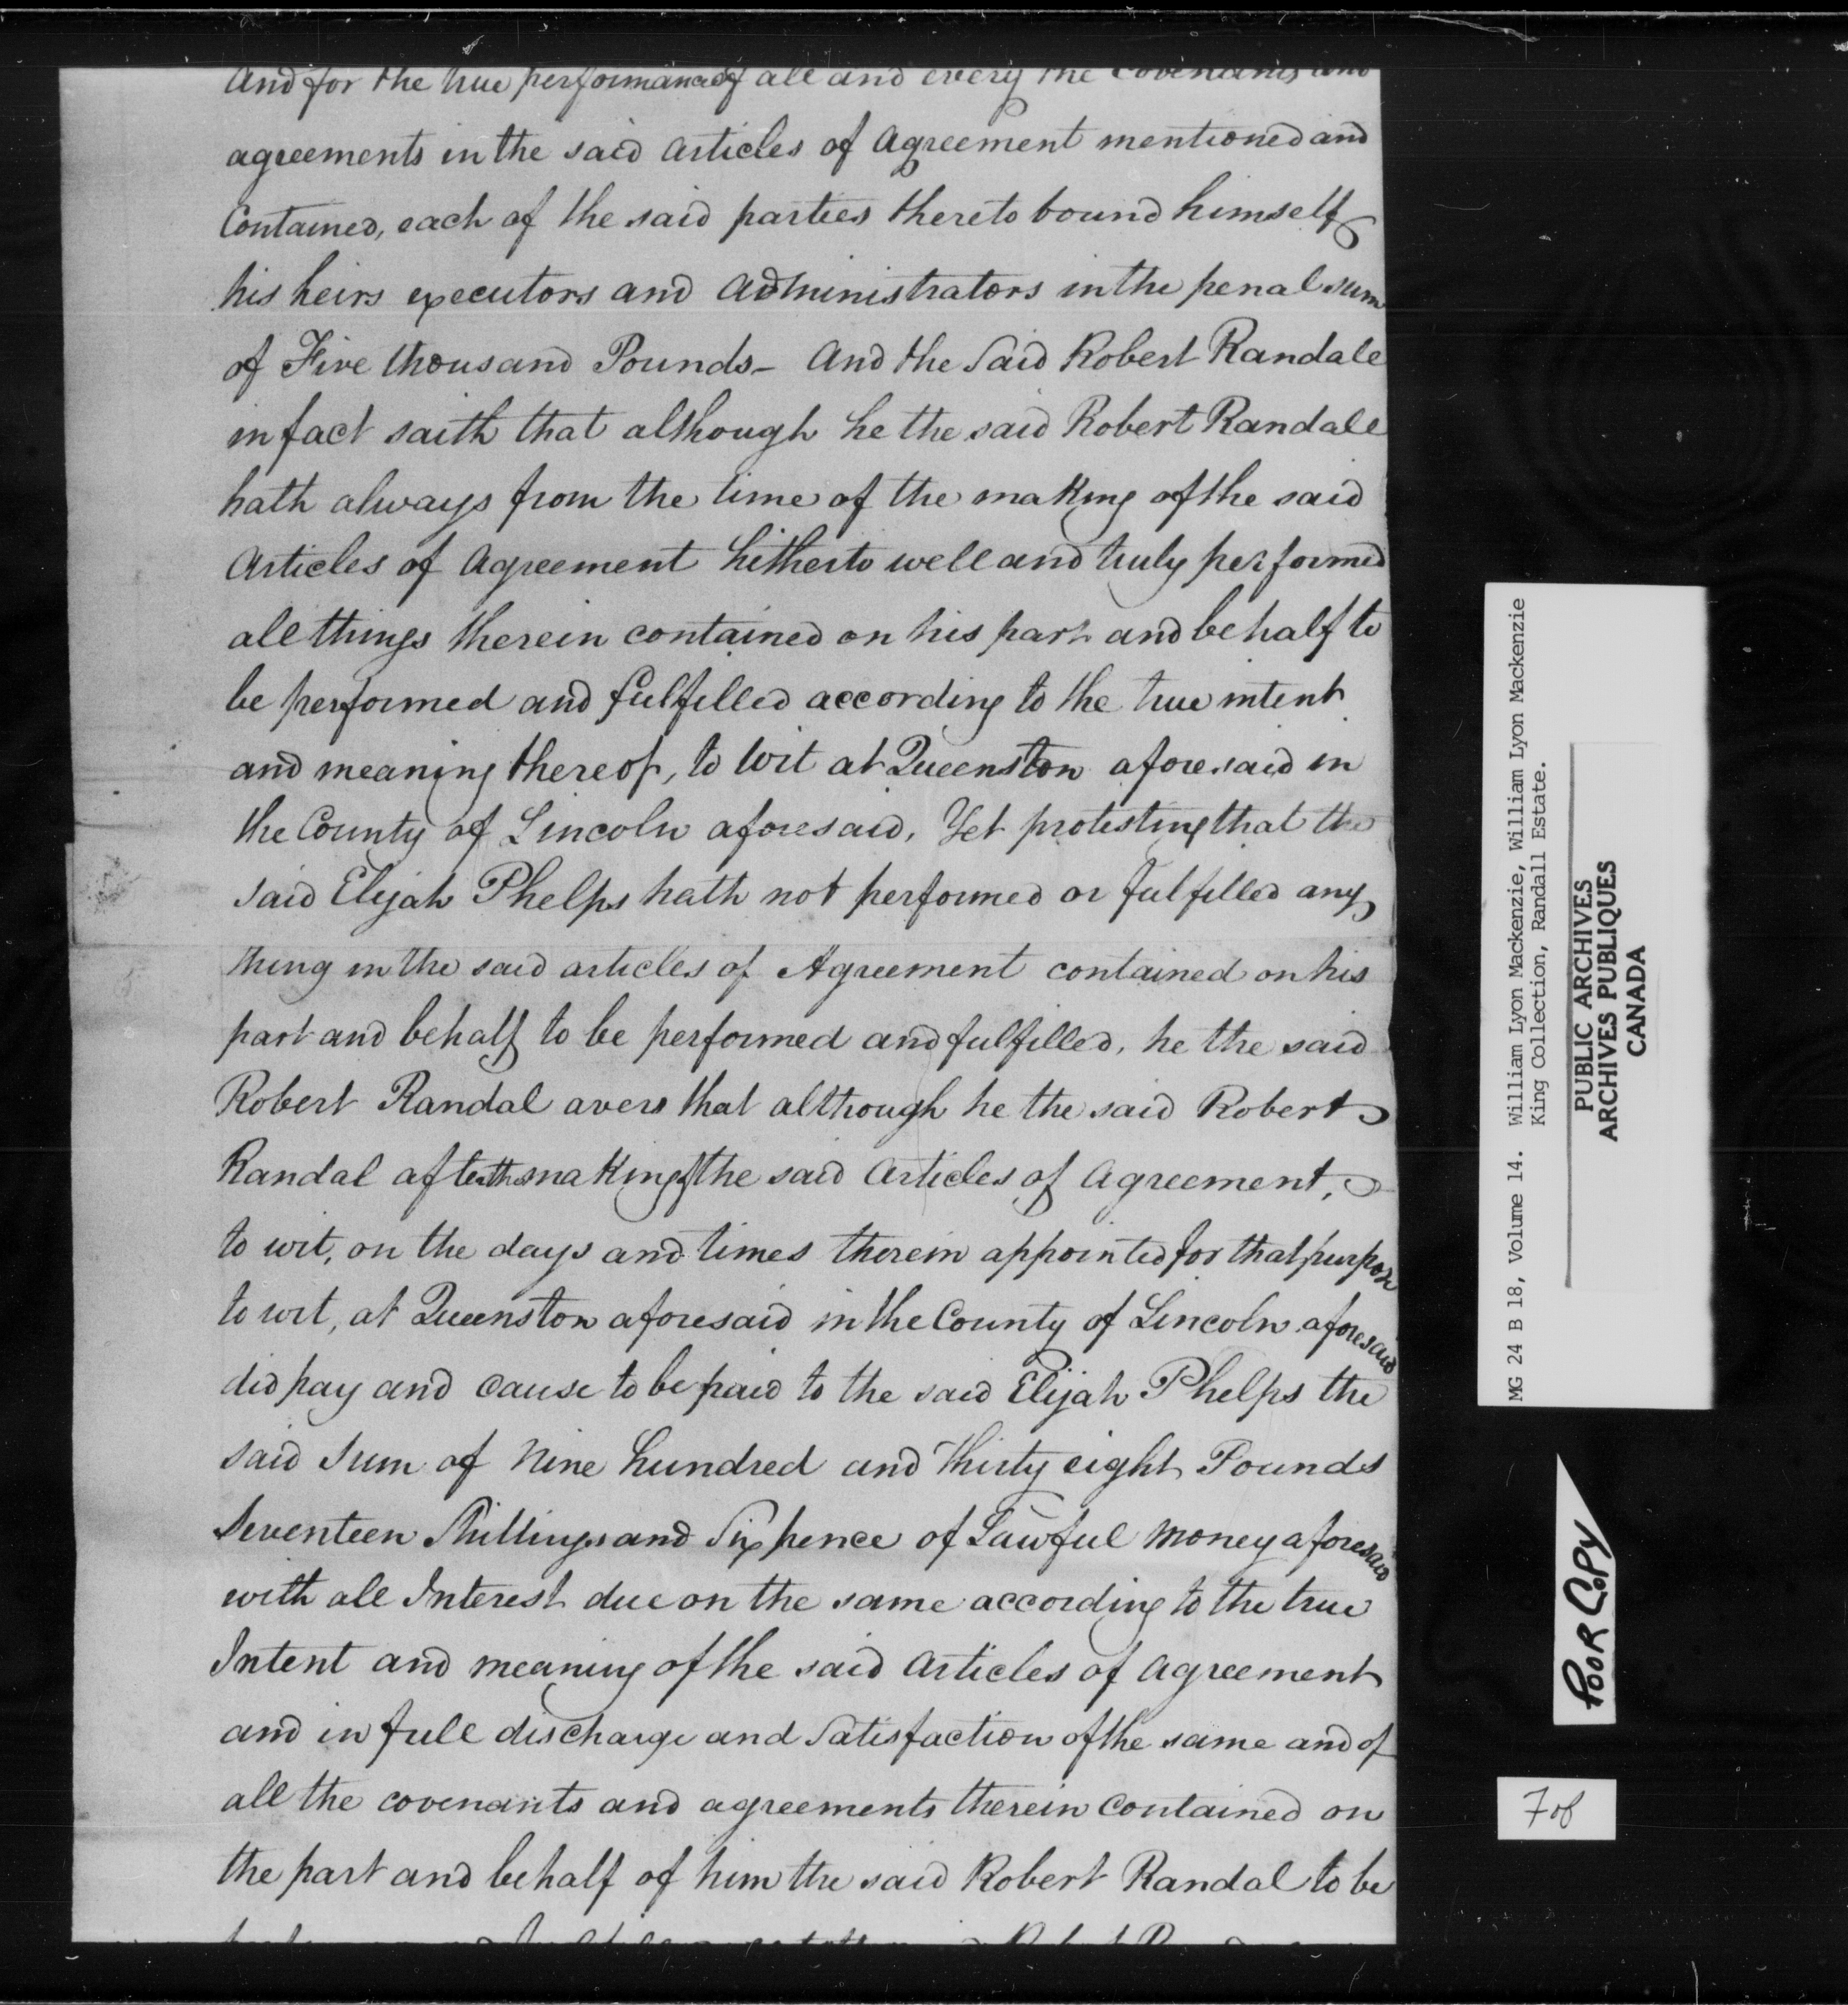 and for the true performance of all and every the covenants and
agreements in the said articles of Agreement mentioned and
Contained, each of the said parties thereto bound himself
his heirs executors and Administrators in the penal sum
of Five thousand Pounds- And the Said Robert Randall
in fact saith that although he the said Robert Randall
hath always from the time of the making of the said
Articles of Agreement hitherto well and truly performed
all things therein contained on his part and behalf to
be performed and fulfilled according to the true intent
and meaning thereof, to Wit at Queenston aforesaid in
the County of Lincoln aforesaid. Yet protesting that the
said Elijah Phelps hath not performed or fulfilled any
thing in the said articles of Agreement contained on his
part and behalf to be performed and fulfilled, he the said
Robert Randal avers that although he the said Robert
Randal after the making of the said Articles of Agreement,
to wit, on the days and times therein appointed for that purpose
to wit, at Queenston aforesaid in the County of Lincoln aforesaid
did pay and cause to be paid to the said Elijah Phelps the
said Sum of Nine hundred and Thirty eight Pounds
Seventeen Shillings and Six pence of Lawful Money aforesaid
with all Interest due on the same according to the true
Intent and meaning of the said Articles of Agreement
and in full discharge and Satisfaction of the same and of
all the covenants and agreements therein Contained on
the part and behalf of him the said Robert Randal to be
MG 24 B 18, Volume 14. William Lyon Mackenzie, William Lyon Mackenzie
King Collection, Randall Estate.
PUBLIC ARCHIVES
ARCHIVES PUBLIQUES
CANADA
POOR COPY